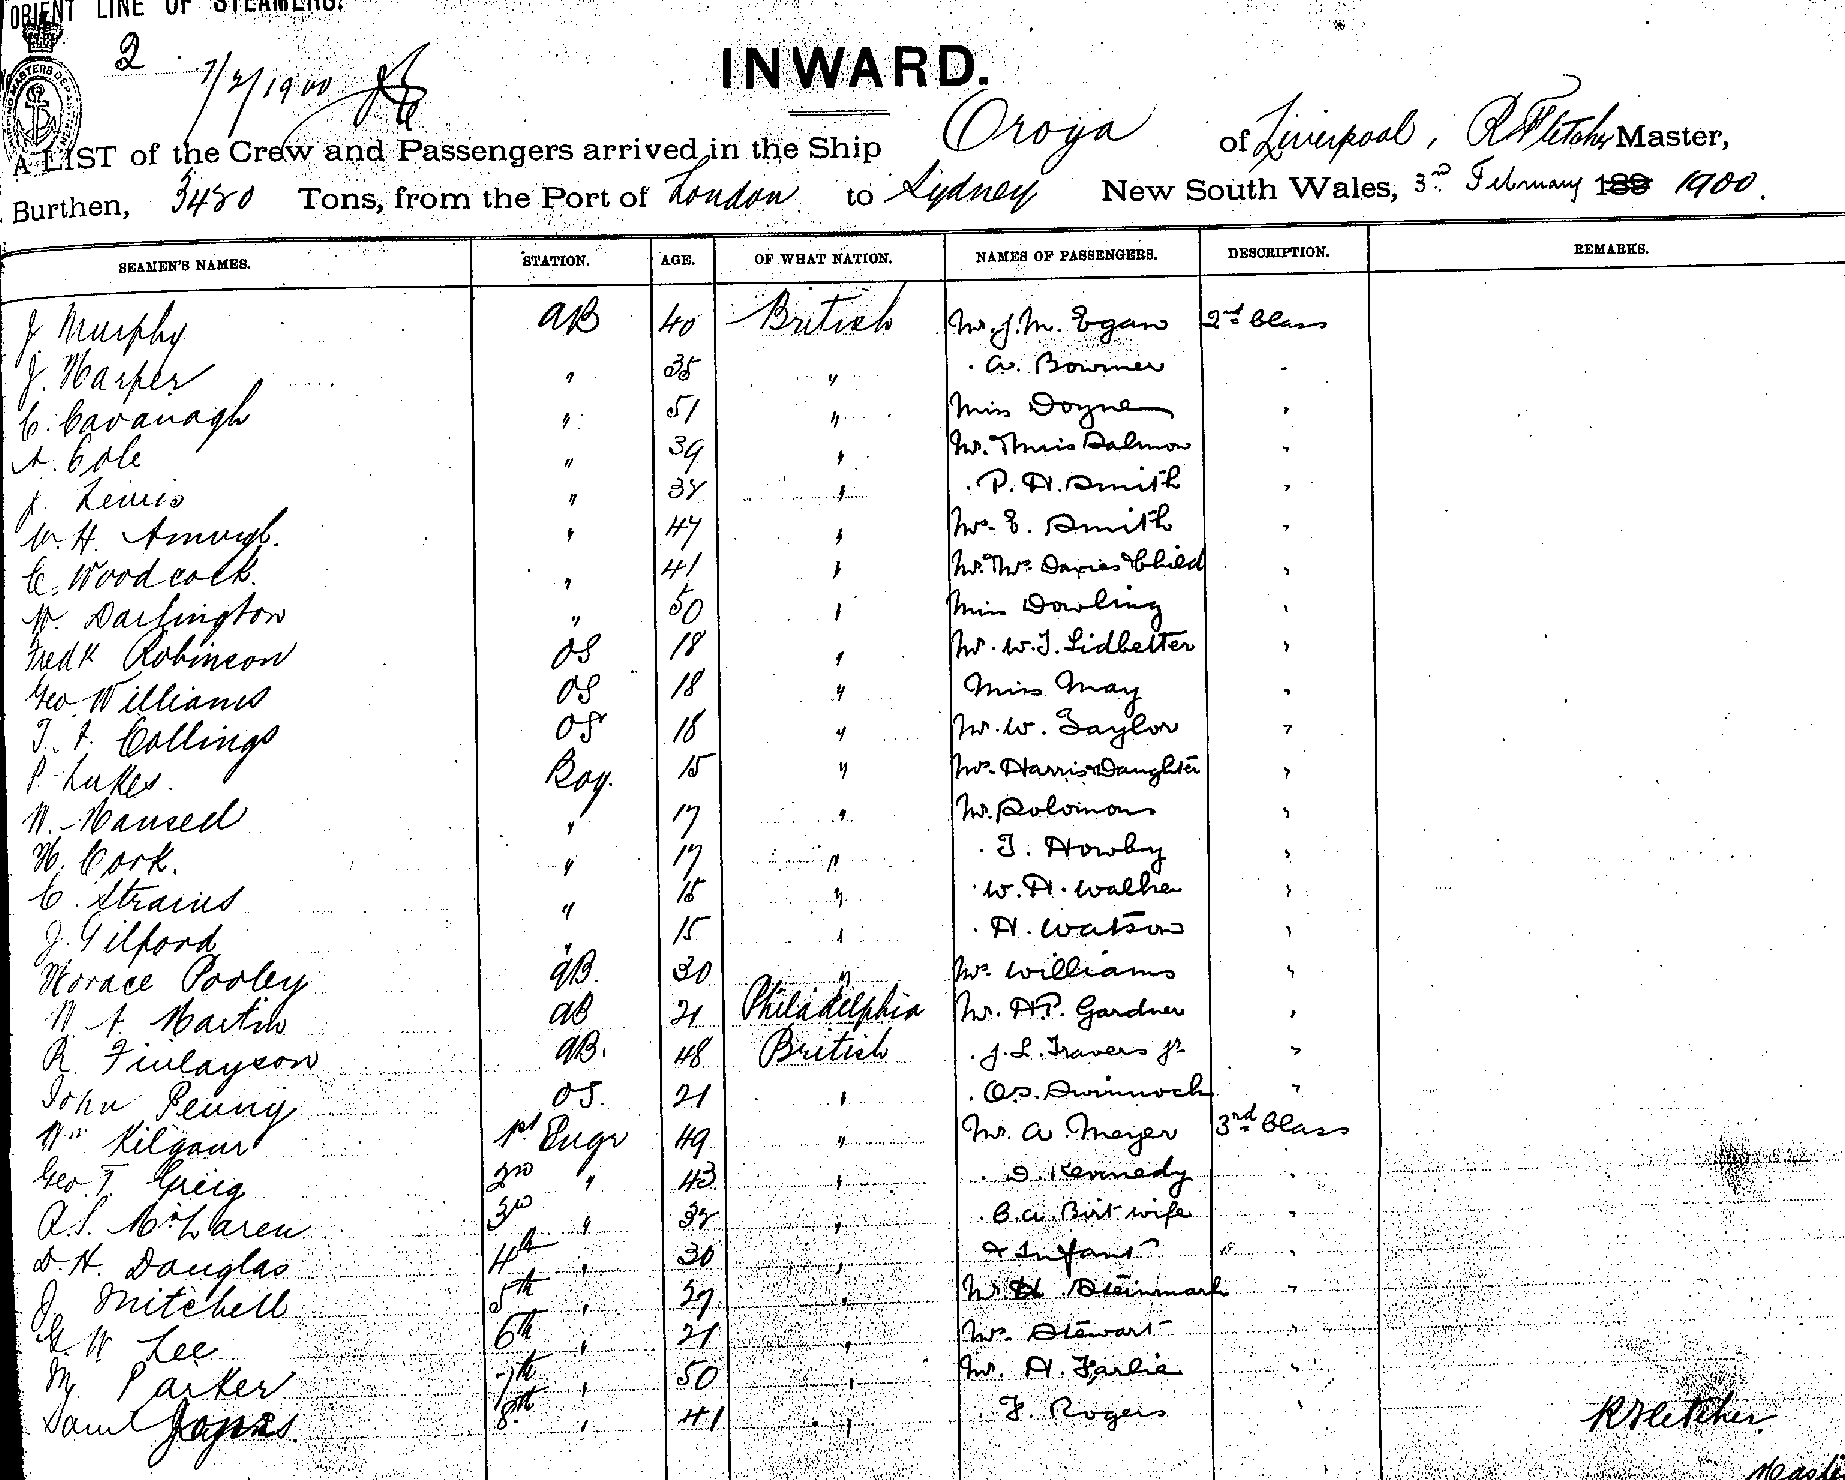 ORIENT LINE OF STEAMERS.
2
7/2/1900
INWARD.
A LIST of the Crew and Passengers arrived in the Ship Oroya of Liverpool, R Fletcher Master,
Burthen, 3480 Tons, from the Port of London to Sydney New South Wales, 3rd February 189 1900.
SEAMEN'S NAMES. STATION. AGE. OF WHAT NATION. NAMES OF PASSENGERS. DESCRIPTION. REMARKS.
J Murphy AB 40 British Mr. J. M. Egan 2nd Class
J. Harper " 35 " . A. Bowmer "
C. Cavanagh " 51 " Miss Doyne "
A. Cole " 39 " Mr. Salmon "
J. Lewis " 38 " . P. H. Smith "
W. H. " 47 " Mrs. E. Smith "
C. Woodcock. " 41 " Mr. Mrs. Davies & Child "
W. Darlington " 50 " Miss Dowling "
Fredk Robinson OS 18 " Mr. W. J. Lidbetter "
Geo. Williams OS 18 " Miss May "
T. A. Collings OS 18 " Mr. W. Taylor "
P. Lukes. Boy. 15 " Mrs. Harris & Daughter "
W. Mansed " 17 " Mr. Solomons "
H. Cork. " 17 " . T. Howby "
C. Strains " 15 " . W. H. Walker "
J. Gilford " 15 " . H. Watson "
Horace Pooley AB. 30 " Mrs. Williams "
W. A. Martin AB 21 Philadelphia Mr. H. P. Gardner "
R. Finlayson AB. 48 British . J. L. Travers Jr. "
John Penny OS. 21 " . O. S. Swinnock "
Wm Kilgour 1st Engr 49 " Mr. A Meyer 3rd Class
Geo. T. Greig 2nd " 43 " . D. Kennedy "
A. S. McLaren 3rd " 38 " . C. A. Birt wife "
D. H. Douglas 4th " 30 " & Infant " "
J. Mitchell 5th " 27 " Mr. H. Steinmark "
G. W Lee 6th " 21 " Mrs. Stewart "
M. Parker 7th " 50 " Mr. H. Farlie "
Saml Jones. 8th " 41 " . F. Rogers "
R Fletcher
Master